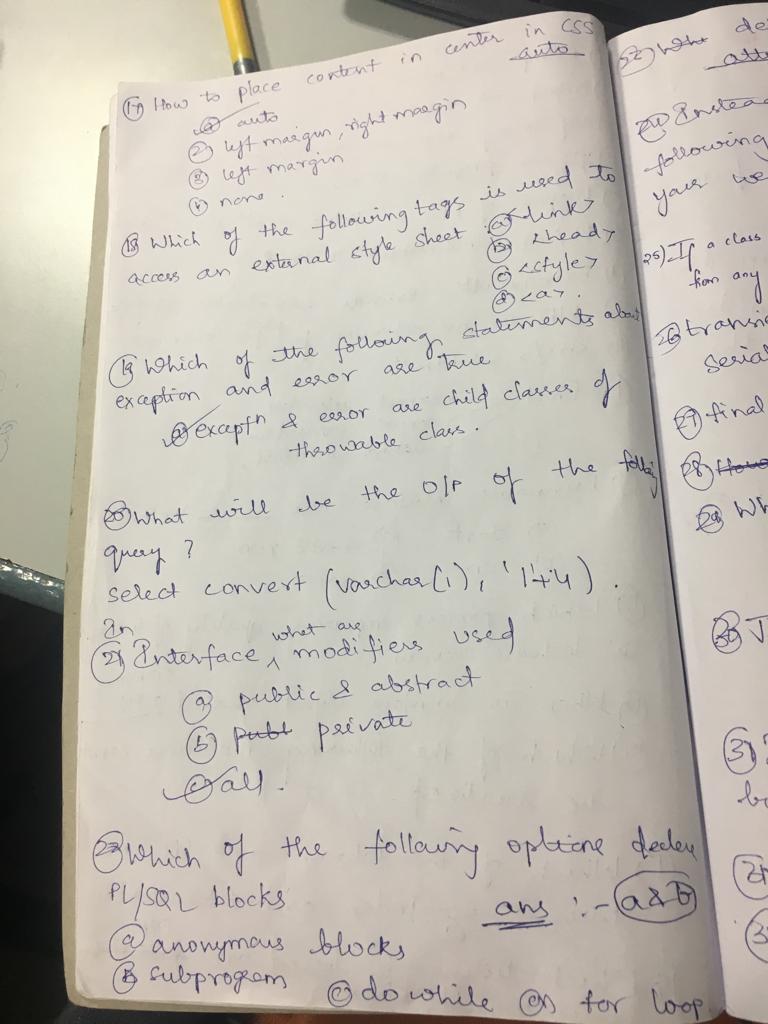 17) How to place content in center in CSS
auto
a auto
2 left margin, right margin
3 left margin
4 none.
18 Which of the following tags is used to
access an external style sheet. a <link>
b <head>
c <style>
d <a>.
19 Which of the following statements about
exception and error are true
a exceptn & error are child classes of
throwable class.
20 What will be the O/P of the
query ?
select convert (varchar(1), '144).
In
21 Interface, what are modifiers used
a public & abstract
b publ private
c all.
Which of the following options
PL/SQL blocks
ans :- a&b
a anonymous blocks
b subprogram
c do while for loop
52
24 Instead
following
your we
25) If a class
from any
26 transi
Serial
27 final
28
29 Wh
30 J
31